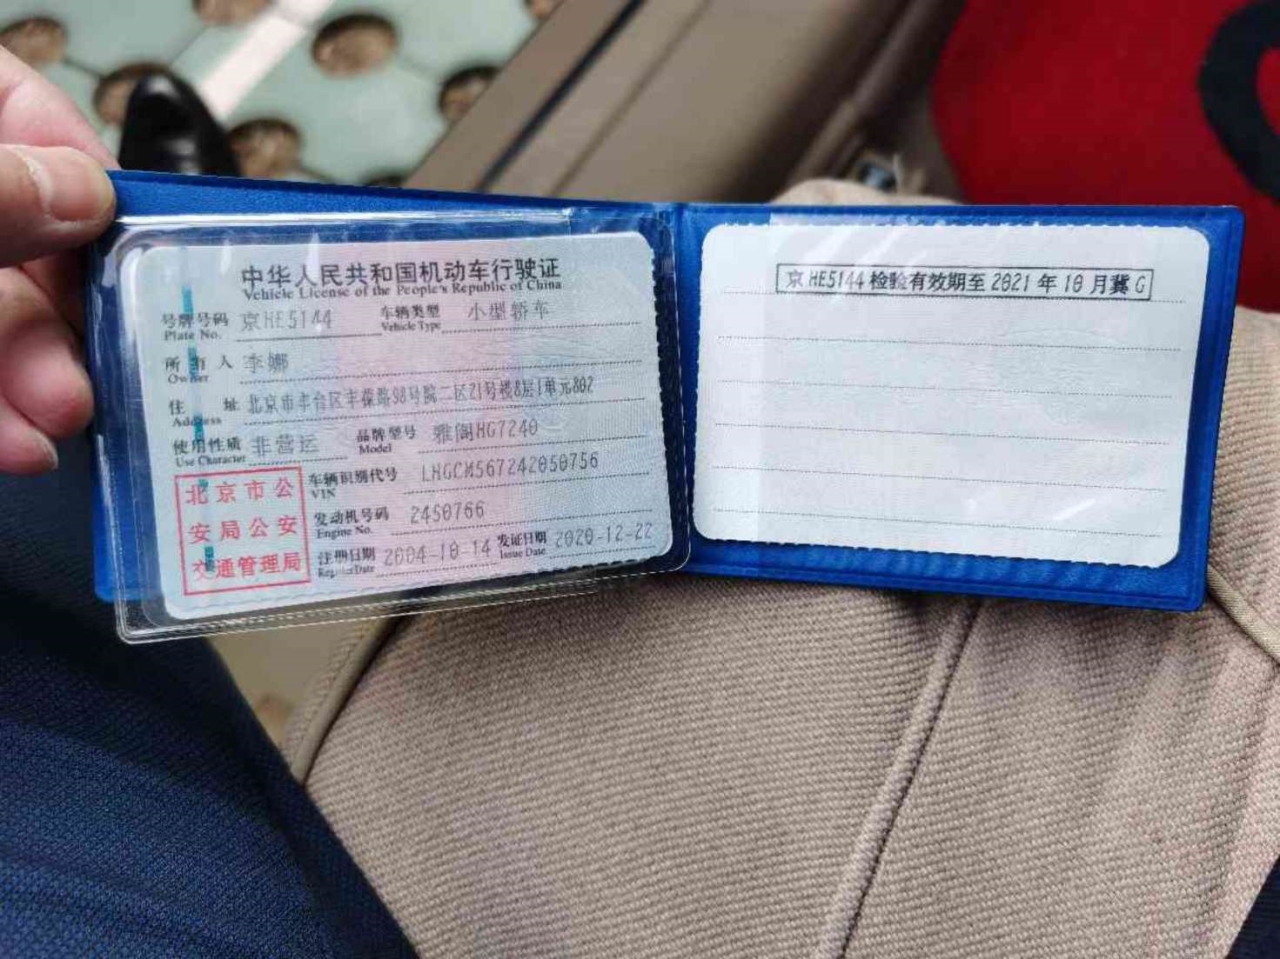 中华人民共和国机动车行驶证
Vehicle License of the People's Republic of China
号牌号码 京HE5144 车辆类型 小型轿车
Plate No. Vehicle Type
所有人 李娜
Owner
住址 北京市丰台区丰葆路98号院二区21号楼8层1单元802
Address
使用性质 非营运 品牌型号 雅阁HG7240
Use Character Model
北京市公安局公安交通管理局
车辆识别代号 LHGCM567242050756
VIN
发动机号码 2450766
Engine No.
注册日期 2004-10-14 发证日期 2020-12-22
Register Date Issue Date
京HE5144检验有效期至2021年10月冀G